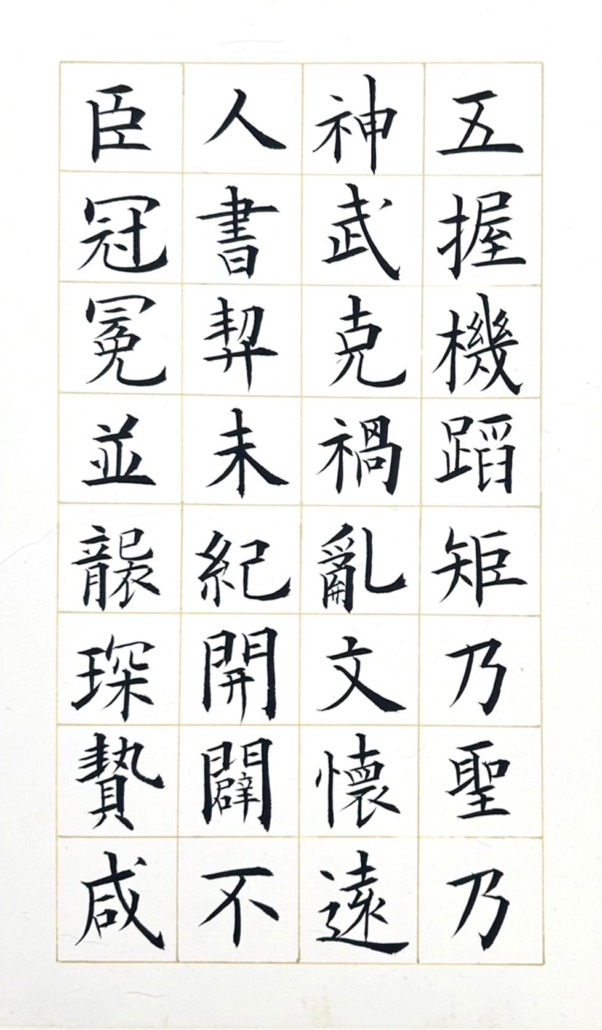 五握機蹈矩乃聖乃
神武克禍亂文懷遠
人書契未紀開闢不
臣冠冕並襲琛贄咸